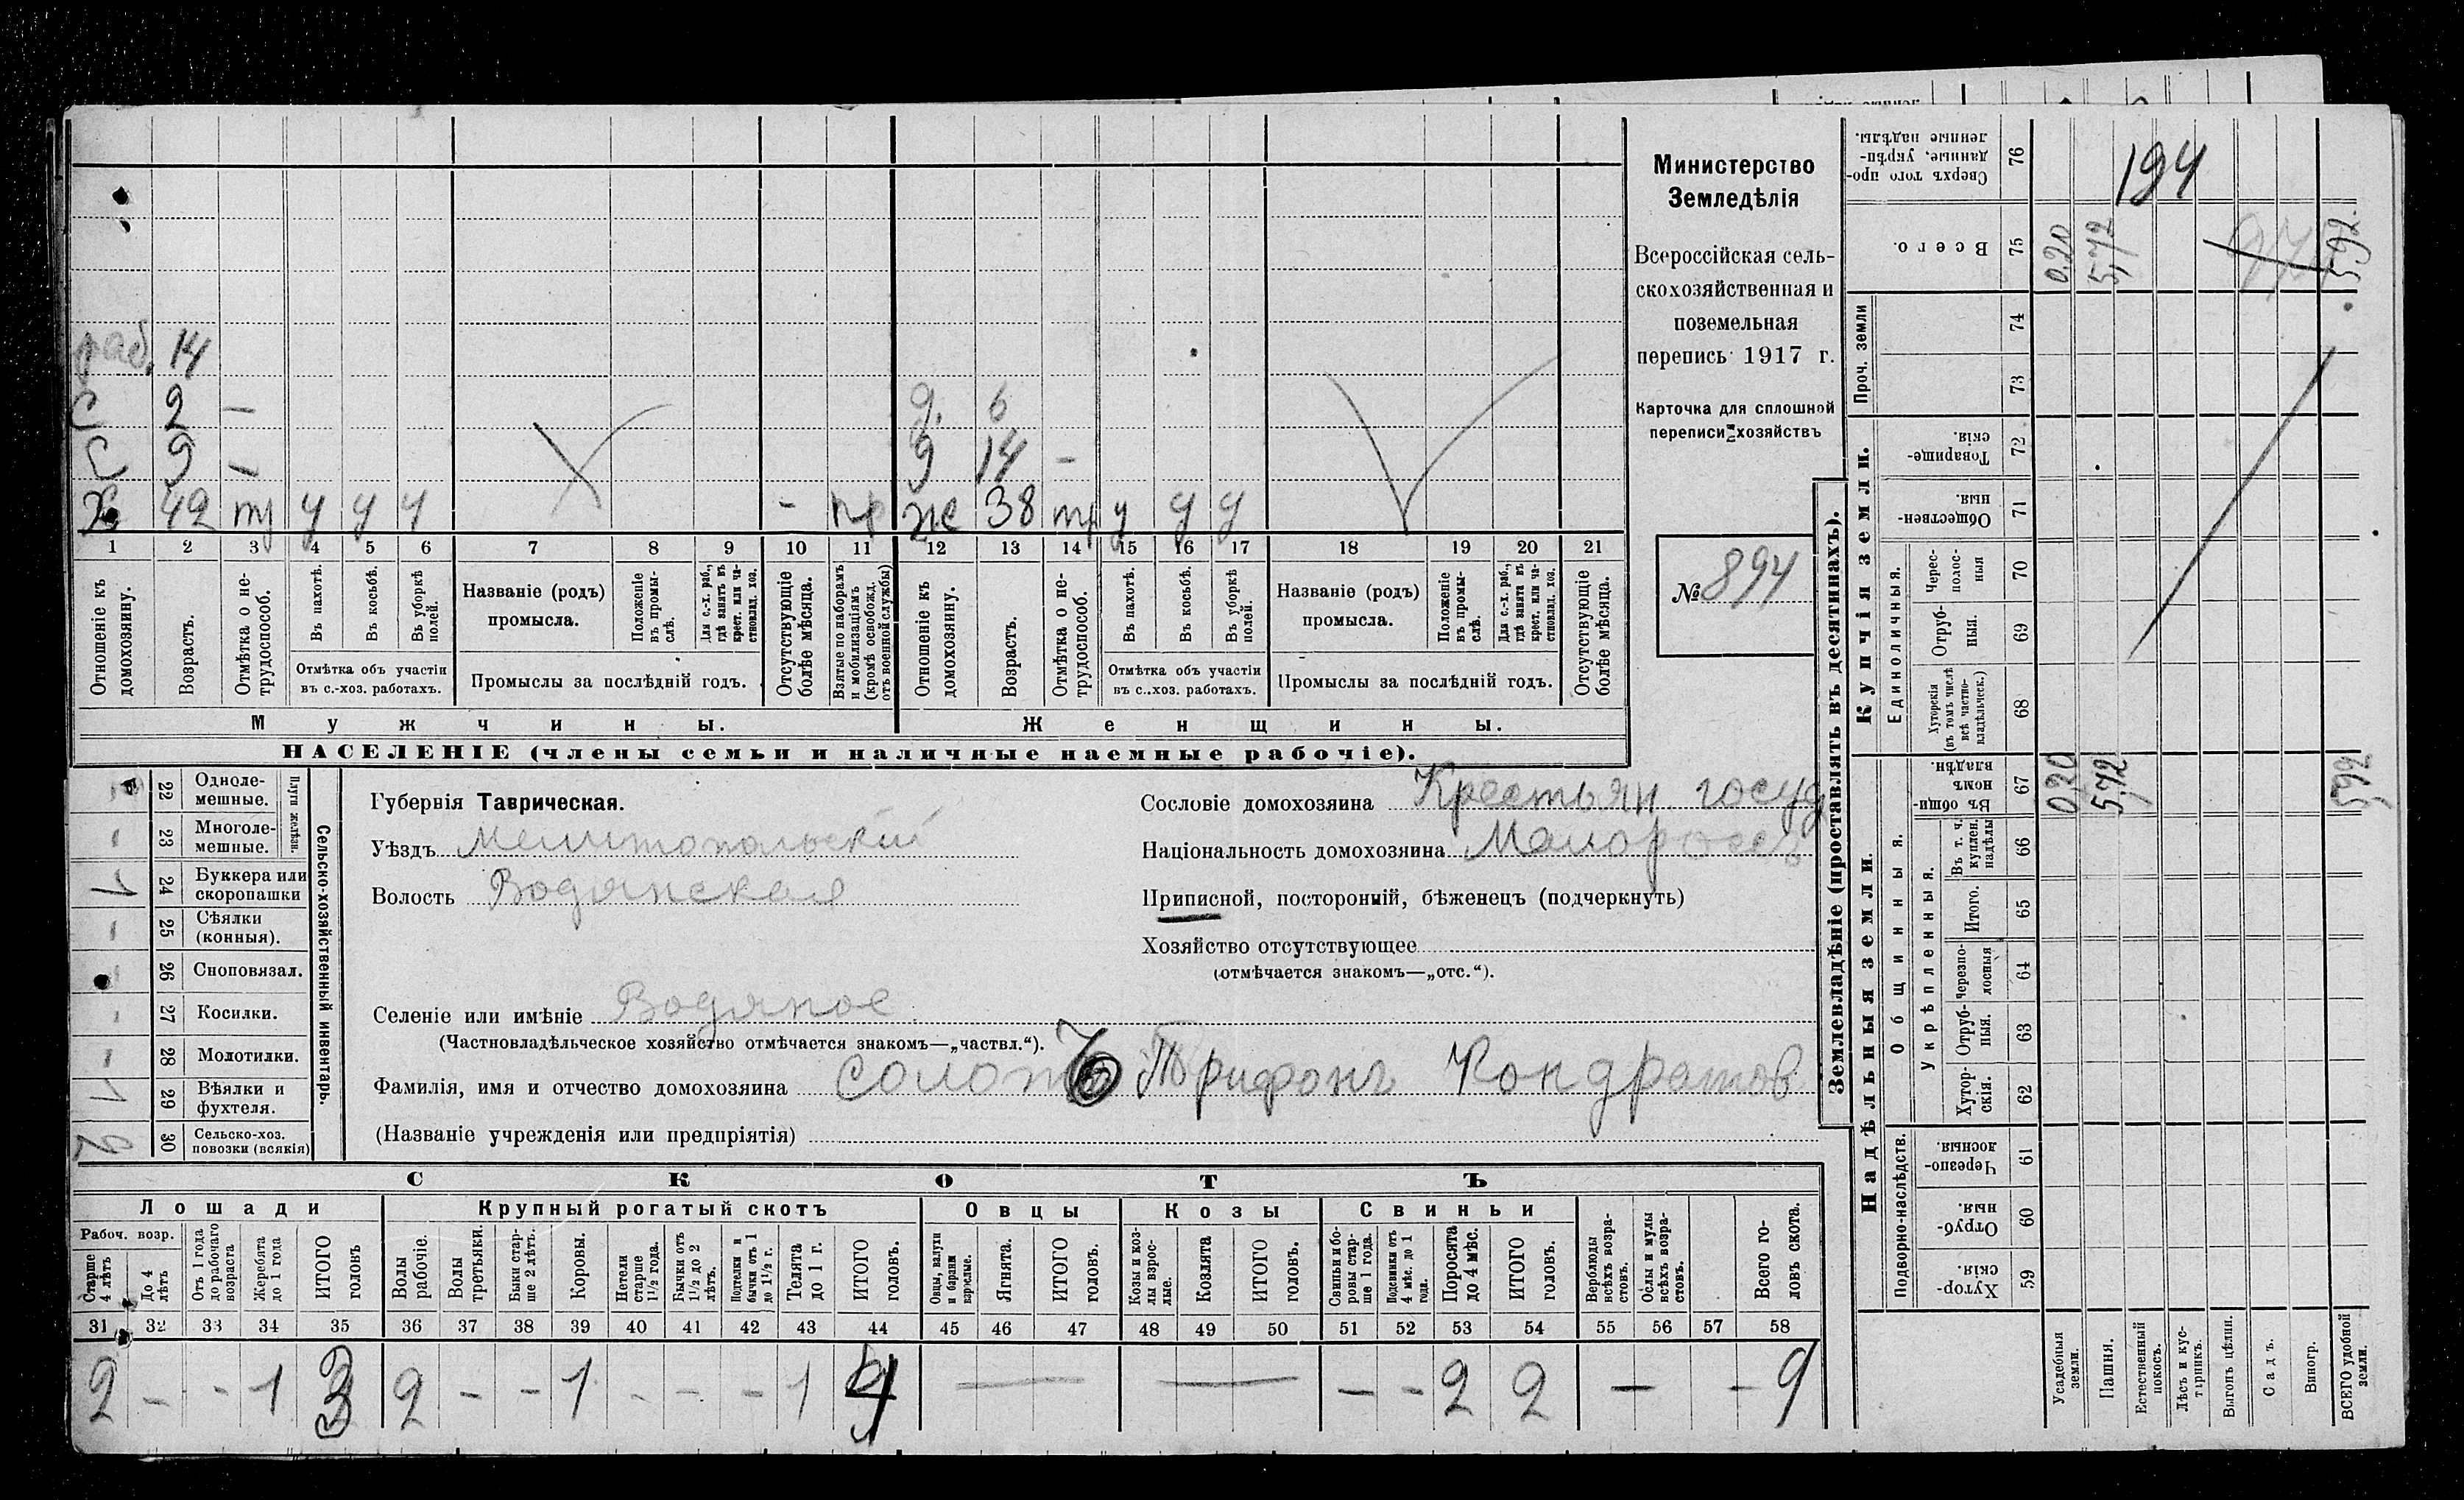 раб. 14
С 2 —
д. 6
С 9 —
д 14 -
Х 42 тр у у у - пр
же 38 тр у у у
1 2 3 4 5 6 7 8 9 10 11 12 13 14 15 16 17 18 19 20 21
Отношеніе къ домохозяину.
Возрастъ.
Отмѣтка о не-трудоспособ.
Въ пахотѣ.
Въ косьбѣ.
Въ уборкѣ полей.
Отмѣтка объ участіи
въ с.-хоз. работахъ.
Названіе (родъ)
промысла.
Положеніе въ промы-слѣ.
Для с.-х. раб., гдѣ занятъ въ крест. или ча-стновлад. хоз.
Промыслы за послѣдній годъ.
Отсутствующіе болѣе мѣсяца.
Взятые по наборамъ и мобилизаціямъ (кромѣ освобожд. отъ военной службы)
Отношеніе къ домохозяину.
Возрастъ.
Отмѣтка о не-трудоспособ.
Въ пахотѣ.
Въ косьбѣ.
Въ уборкѣ полей.
Отмѣтка объ участіи
въ с.-хоз. работахъ.
Названіе (родъ)
промысла.
Положеніе въ промы-слѣ.
Для с.-х. раб., гдѣ занята въ крест. или ча-стновлад. хоз.
Промыслы за послѣдній годъ.
Отсутствующіе болѣе мѣсяца.
Мужчины.
Женщины.
НАСЕЛЕНІЕ (члены семьи и наличные наемные рабочіе).
Министерство
Земледѣлія
Всероссійская сель-
скохозяйственная и
поземельная
перепись 1917 г.
Карточка для сплошной
переписи хозяйствъ
№ 894
22 Одноле-мешные.
23 Многоле-мешные.
Плуги желѣзн.
24 Буккера или скоропашки 1
25 Сѣялки (конныя).
26 Сноповязал.
27 Косилки.
28 Молотилки.
29 Вѣялки и фухтеля. 1
30 Сельско-хоз. повозки (всякія)
Сельско-хозяйственный инвентарь.
Губернія Таврическая.
Уѣздъ Мелитопольскій
Волость Водянская
Селеніе или имѣніе Водяное
(Частновладѣльческое хозяйство отмѣчается знакомъ—„частвл.“).
Фамилія, имя и отчество домохозяина Трифонъ Кондратов
(Названіе учрежденія или предпріятія)
Сословіе домохозяина Крестьян. госуд
Національность домохозяина Малороссъ
Приписной, посторонній, бѣженецъ (подчеркнуть)
Хозяйство отсутствующее
(отмѣчается знакомъ—„отс.“).
СКОТЪ
Лошади
Крупный рогатый скотъ
Овцы
Козы
Свиньи
Рабоч. возр.
Старше 4 лѣтъ
До 4 лѣтъ
Отъ 1 года до рабочаго возраста
Жеребята до 1 года
ИТОГО головъ
Волы рабочіе.
Волы третьяки.
Быки стар-ше 2 лѣтъ.
Коровы.
Нетели старше 1½ года.
Бычки отъ 1½ до 2 лѣтъ.
Подтелки и бычки отъ 1 до 1½ г.
Телята до 1 г.
ИТОГО головъ.
Овцы, валухи и бараны взрослые.
Ягнята.
ИТОГО головъ.
Козы и коз-лы взрос-лые.
Козлята
ИТОГО головъ.
Свиньи и бо-ровы стар-ше 1 года.
Подсвинки отъ 4 мѣс. до 1 года.
Поросята до 4 мѣс.
ИТОГО головъ.
Верблюды всѣхъ возра-стовъ.
Ослы и мулы всѣхъ возра-стовъ.
Всего го-ловъ скота.
31 32 33 34 35 36 37 38 39 40 41 42 43 44 45 46 47 48 49 50 51 52 53 54 55 56 57 58
2 - - 1 3 2 - - 1 - - - 1 4 — — - - 2 2 — - 9
Землевладѣніе (проставлять въ десятинахъ).
Надѣльныя земли.
Купчія земли.
Проч. земли
Подворно-наслѣдств.
Общинныя.
Укрѣпленныя.
Единоличныя.
Сверхъ того про-данные, укрѣп-ленные надѣлы. 76 194
Всего. 75 0.20 5,72 5,92.
74
73
Товарище-скія. 72
Обществен-ныя. 71
Черес-полос-ныя 70
Отруб-ныя. 69
Хуторскія (въ томъ числѣ всѣ частно-владѣльческ.) 68
Въ общин-номъ владѣн. 67 0,20 5,72 5,92
Въ т. ч. куплен. надѣлы 66
Итого. 65
Черезпо-лосныя 64
Отруб-ныя. 63
Хутор-скія. 62
Черезпо-лосныя 61
Отруб-ныя. 60
Хутор-скія. 59
Усадебныя земли.
Пашня.
Естественный покосъ.
Лѣсъ и кус-тарникъ.
Выгонъ цѣлин.
Садъ.
Виногр.
ВСЕГО удобной земли.